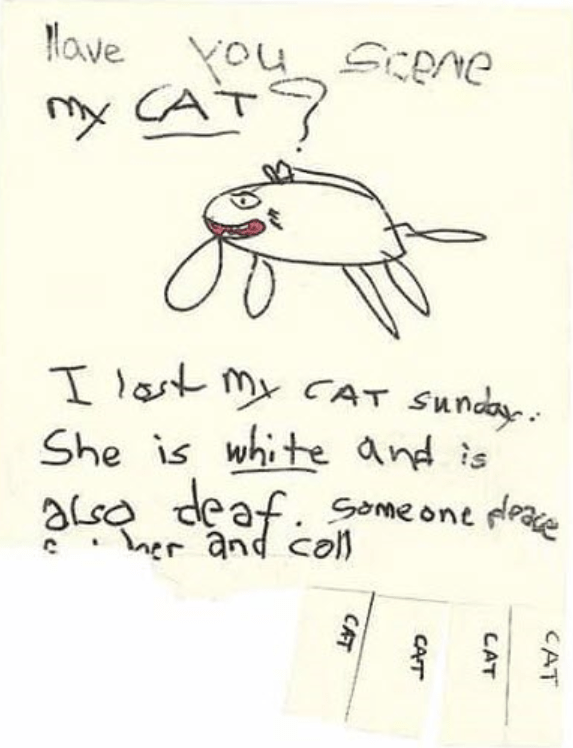 Have you scene
my CAT?
I lost my CAT sunday.
She is white and is
also deaf. Someone please
her and coll
CAT CAT CAT CAT